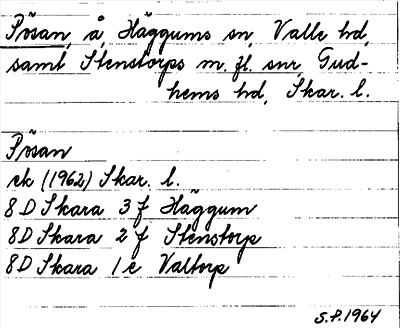 Pösan, å, Häggums sn, Valle hd,
samt Stenstorps m. fl. snr, Gud-
hems hd, Skar. l.
Pösan
ek (1962) Skar. l.
8D Skara 3 f Häggum
8D Skara 2 f Stenstorp
8D Skara 1 e Valtorp
S.P. 1964